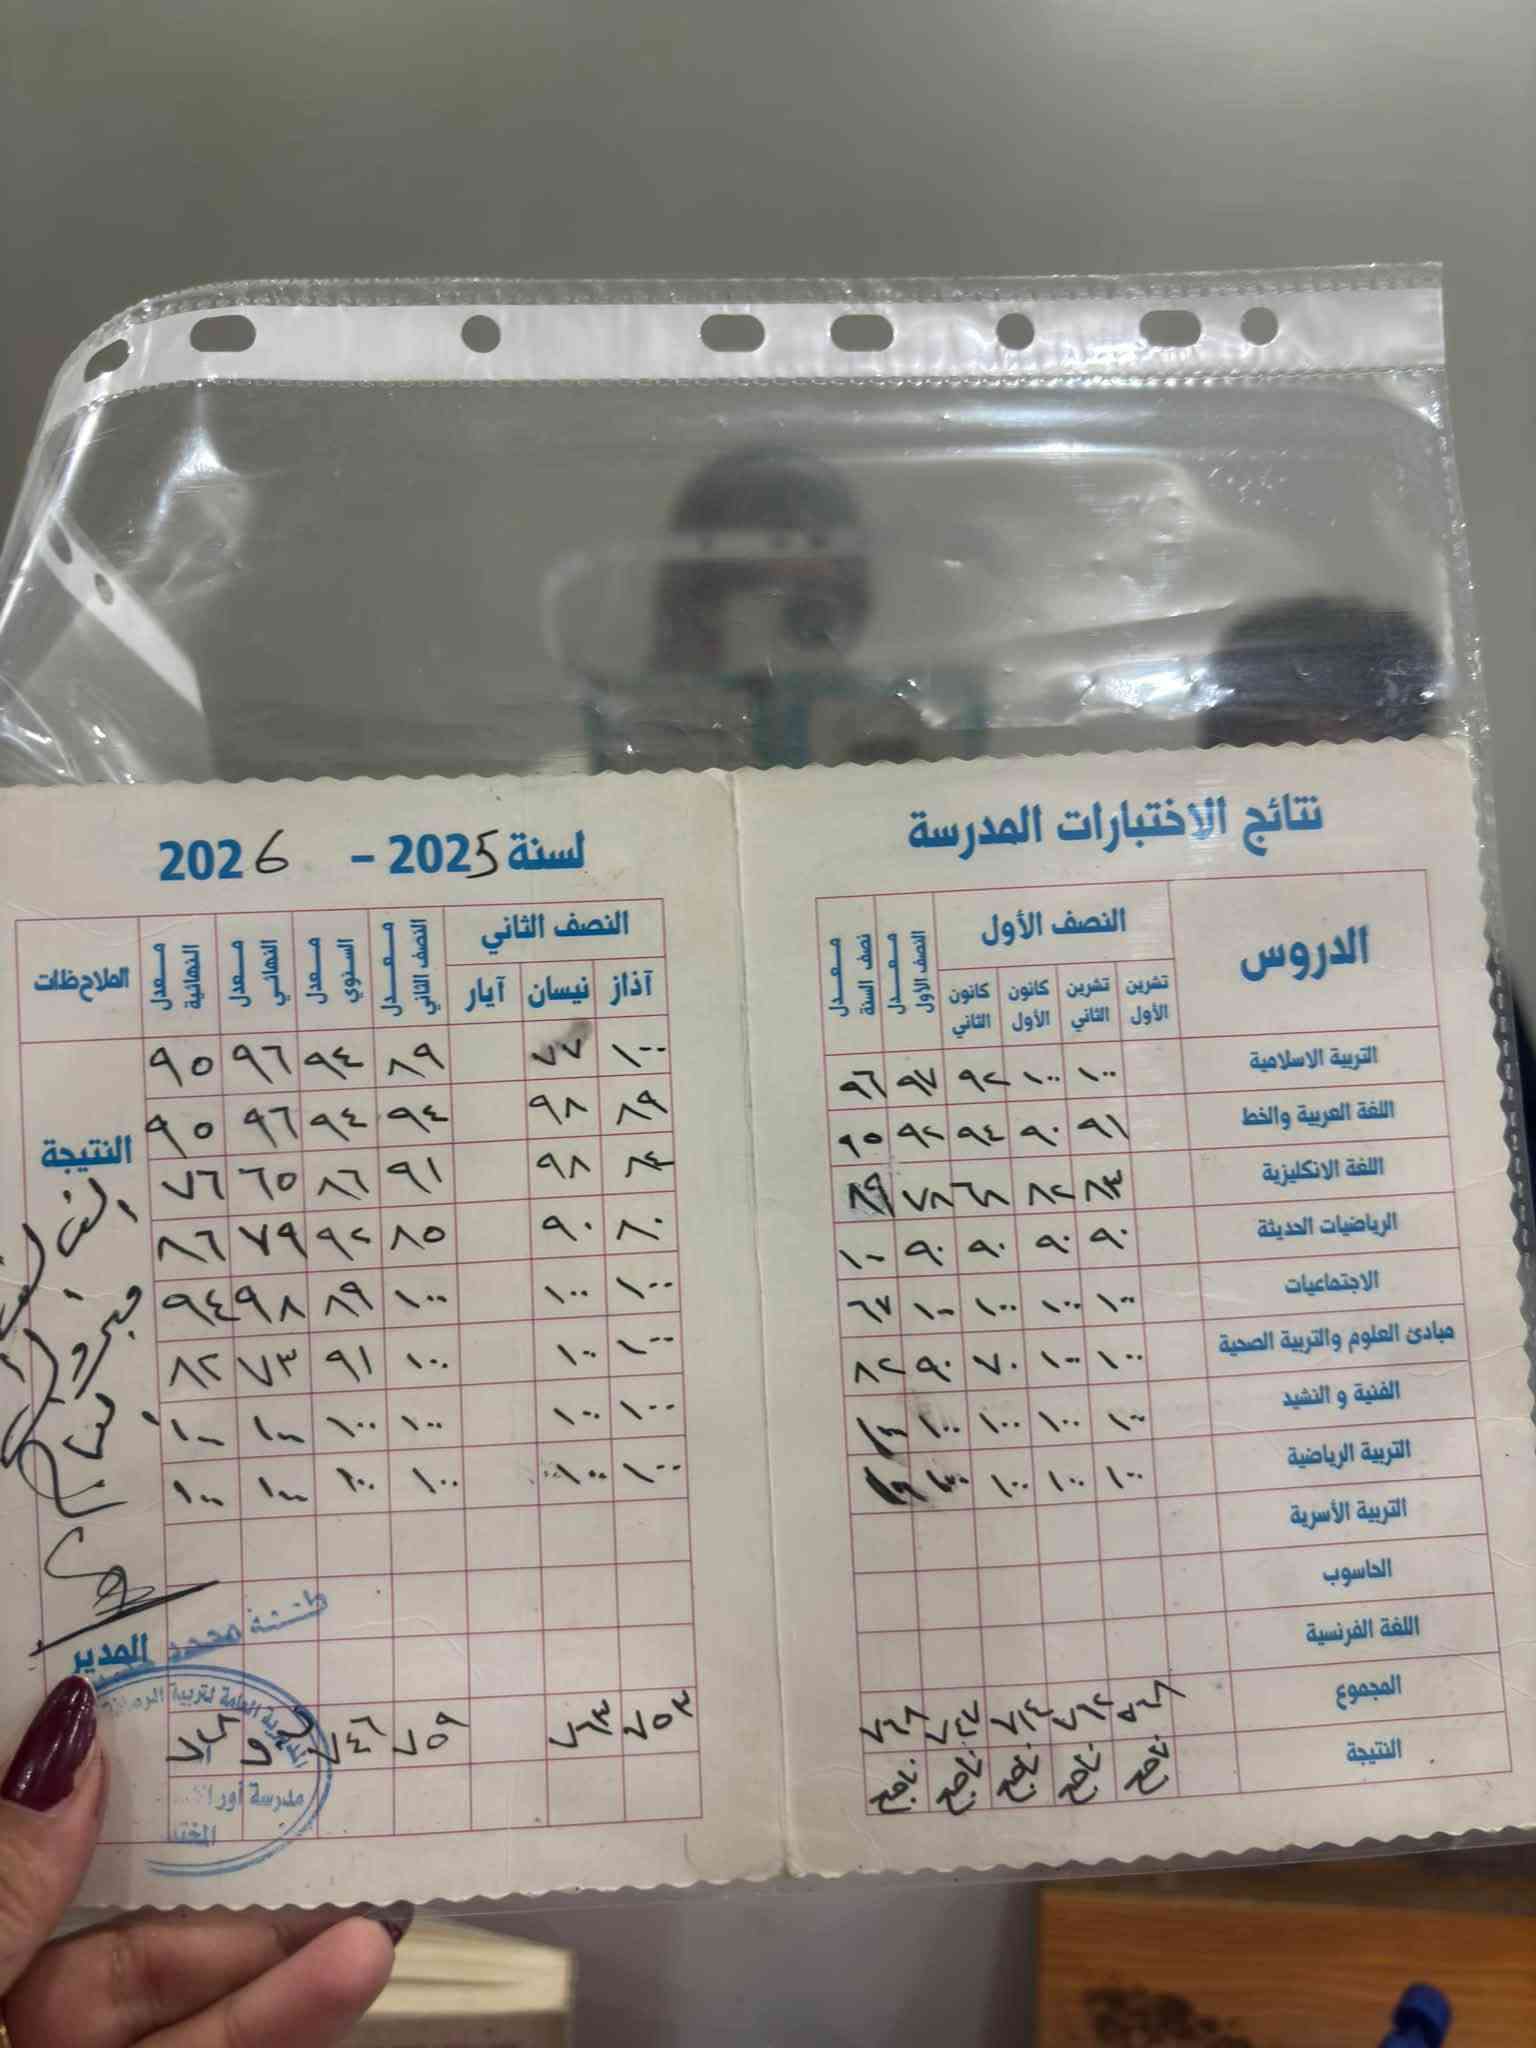 نتائج الاختبارات المدرسة
الدروس
النصف الأول
معدل النصف الأول
معدل نصف السنة
تشرين الأول
تشرين الثاني
كانون الأول
كانون الثاني
التربية الاسلامية ١٠٠ ١٠٠ ٩٢ ٩٧ ٩٦
اللغة العربية والخط ٩١ ٩٠ ٩٤ ٩٢ ٩٥
اللغة الانكليزية ٨٣ ٨٢ ٦٨ ٧٨ ٨٩
الرياضيات الحديثة ٩٠ ٩٠ ٩٠ ٩٠ ١٠٠
الاجتماعيات ١٠٠ ١٠٠ ١٠٠ ١٠٠ ٦٧
مبادئ العلوم والتربية الصحية ١٠٠ ١٠٠ ٧٠ ٩٠ ٨٢
الفنية و النشيد ١٠٠ ١٠٠ ١٠٠ ١٠٠
التربية الرياضية ١٠٠ ١٠٠ ١٠٠ ١٠٠
التربية الأسرية
الحاسوب
اللغة الفرنسية
المجموع ٧٦٢ ٧١٤
النتيجة ناجح ناجح ناجح ناجح ناجح
لسنة 2025 – 2026
النصف الثاني
معدل النصف الثاني
معدل السنوي
معدل النهائي
معدل النهائية
الملاحظات
آذاز نيسان آيار
١٠٠ ٧٧ ٨٩ ٩٤ ٩٦ ٩٥
٨٩ ٩٨ ٩٤ ٩٤ ٩٦ ٩٥
٨٤ ٩٨ ٩١ ٨٦ ٦٥ ٧٦
٨٠ ٩٠ ٨٥ ٩٢ ٧٩ ٨٦
١٠٠ ١٠٠ ١٠٠ ٨٩ ٩٨ ٩٤
١٠٠ ١٠٠ ١٠٠ ٩١ ٧٣ ٨٢
١٠٠ ١٠٠ ١٠٠ ١٠٠ ١٠٠ ١٠٠
١٠٠ ١٠٠ ١٠٠ ١٠٠ ١٠٠ ١٠٠
٧٥٣ ٧٦٣ ٧٥٩ ٧٤٦
النتيجة
ناجح
محمد
المدير
العامة لتربية
مدرسة